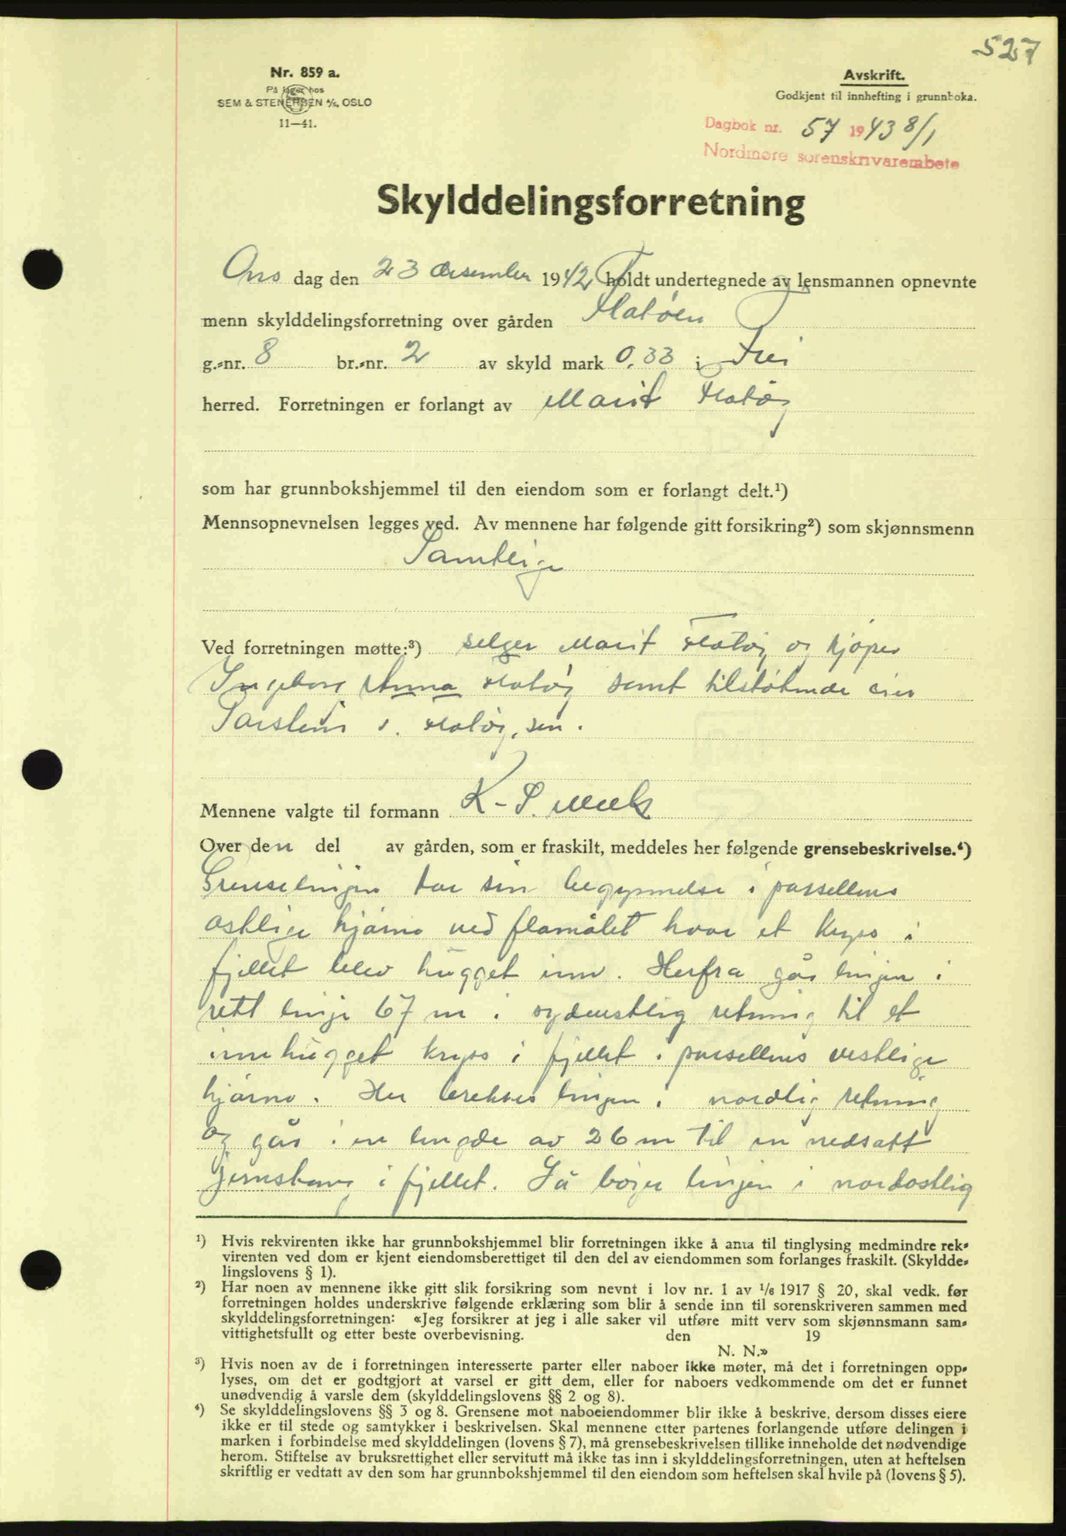 527
Nr. 859 a.
På lager hos
SEM & STENERSEN A/S, OSLO
11—41.
Avskrift.
Godkjent til innhefting i grunnboka.
Dagbok nr. 57 1943 8/1
Nordmøre sorenskrivarembete
Skylddelingsforretning
Ons dag den 23 desember 1942 holdt undertegnede av lensmannen opnevnte
menn skylddelingsforretning over gården Flatøen
g.-nr. 8 br.-nr. 2 av skyld mark 0,33 i Frei
herred. Forretningen er forlangt av Marit Flatøy
som har grunnbokshjemmel til den eiendom som er forlangt delt.¹)
Mennsopnevnelsen legges ved. Av mennene har følgende gitt forsikring²) som skjønnsmenn
Samtlige
Ved forretningen møtte:³) selger Marit Flatøy og kjøper
Ingeborg Anna Flatøy samt tilstøtende eier
Torstein s. Flatøy, sen.
Mennene valgte til formann K. S.
Over den del av gården, som er fraskilt, meddeles her følgende grensebeskrivelse.⁴)
Grenselinjen tar sin begynnelse i parsellens
østlige hjørne ved flomålet hvor et kryss i
fjellet blev hugget inn. Herfra går linjen i
rett linje 67 m i sydvestlig retning til et
innhugget kryss i fjellet i parsellens vestlige
hjørne. Her brekkes linjen i nordlig retning
og går i en lengde av 26 m til en nedsatt
jernstang i fjellet. Så bøier linjen i nordøstlig
¹) Hvis rekvirenten ikke har grunnbokshjemmel blir forretningen ikke å anta til tinglysing medmindre rek-
virenten ved dom er kjent eiendomsberettiget til den del av eiendommen som forlanges fraskilt. (Skyldde-
lingslovens § 1).
²) Har noen av mennene ikke gitt slik forsikring som nevnt i lov nr. 1 av 1/6 1917 § 20, skal vedk. før
forretningen holdes underskrive følgende erklæring som blir å sende inn til sorenskriveren sammen med
skylddelingsforretningen: «Jeg forsikrer at jeg i alle saker vil utføre mitt verv som skjønnsmann sam-
vittighetsfullt og etter beste overbevisning. den 19
N. N.»
³) Hvis noen av de i forretningen interesserte parter eller naboer ikke møter, må det i forretningen opp-
lyses, om det er godtgjort at varsel er gitt dem, eller for naboers vedkommende om det er funnet
unødvendig å varsle dem (skylddelingslovens §§ 2 og 8).
⁴) Se skylddelingslovens §§ 3 og 8. Grensene mot naboeiendommer blir ikke å beskrive, dersom disses eiere
ikke er til stede og samtykker i beskrivelsen. Skal mennene etter partenes forlangende utføre delingen i
marken i forbindelse med skylddelingen (lovens § 7), må grensebeskrivelsen tillike inneholde det nødvendige
herom. Stiftelse av bruksrettighet eller servitutt må ikke tas inn i skylddelingsforretningen, uten at heftelsen
skriftlig er vedtatt av den som har grunnbokshjemmel til den eiendom som heftelsen skal hvile på (lovens § 5).